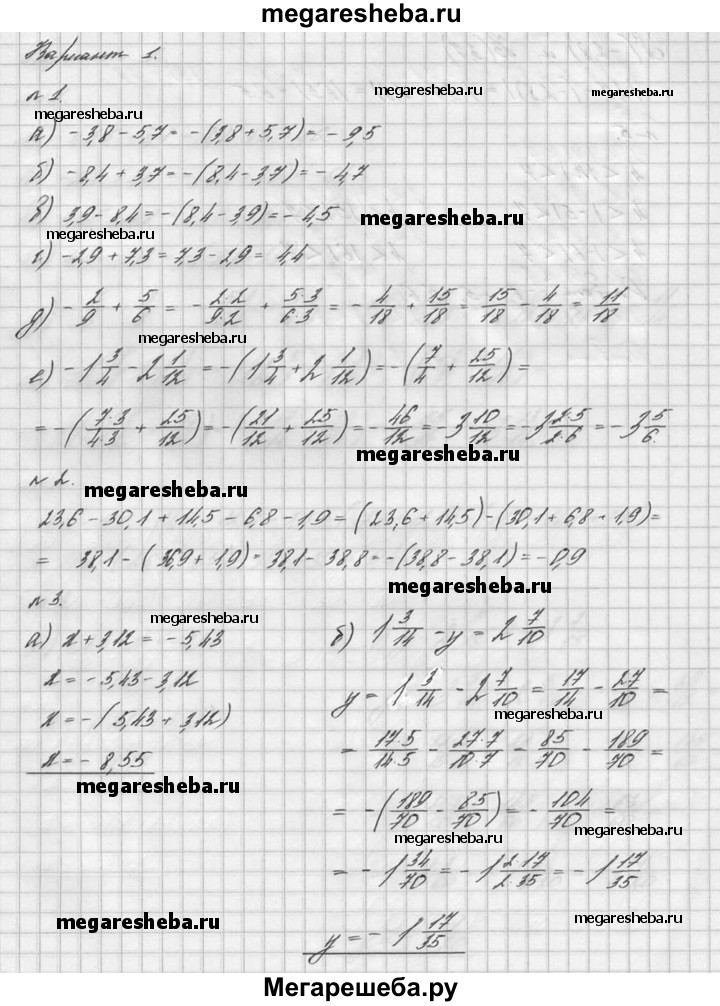 megaresheba.ru
Вариант 1.
megaresheba.ru
megaresheba.ru
№ 1.
megaresheba.ru
а) -3,8 - 5,7 = -(3,8 + 5,7) = -9,5
б) -8,4 + 3,7 = -(8,4 - 3,7) = -4,7
в) 3,9 - 8,4 = -(8,4 - 3,9) = -4,5
megaresheba.ru
megaresheba.ru
г) -2,9 + 7,3 = 7,3 - 2,9 = 4,4
д) -2/9 + 5/6 = -2·2/9·2 + 5·3/6·3 = -4/18 + 15/18 = 15/18 - 4/18 = 11/18
megaresheba.ru
е) -1 3/4 - 2 1/12 = -(1 3/4 + 2 1/12) = -(7/4 + 25/12) =
= -(7·3/4·3 + 25/12) = -(21/12 + 25/12) = -46/12 = -3 10/12 = -3 2·5/2·6 = -3 5/6.
megaresheba.ru
№ 2.
megaresheba.ru
23,6 - 30,1 + 14,5 - 6,8 - 1,9 = (23,6 + 14,5) - (30,1 + 6,8 + 1,9) =
= 38,1 - (36,9 + 1,9) = 38,1 - 38,8 = -(38,8 - 38,1) = -0,9
megaresheba.ru
№ 3.
megaresheba.ru
а) x + 3,12 = -5,43
x = -5,43 - 3,12
x = -(5,43 + 3,12)
x = -8,55
megaresheba.ru
б) 1 3/14 - y = 2 7/10
y = 1 3/14 - 2 7/10 = 17/14 - 27/10 =
megaresheba.ru
= 17·5/14·5 - 27·7/10·7 = 85/70 - 189/70 =
= -(189/70 - 85/70) = -104/70 =
megaresheba.ru
megaresheba.ru
= -1 34/70 = -1 2·17/2·35 = -1 17/35
megaresheba.ru
megaresheba.ru
y = -1 17/35
Мегарешеба.ру